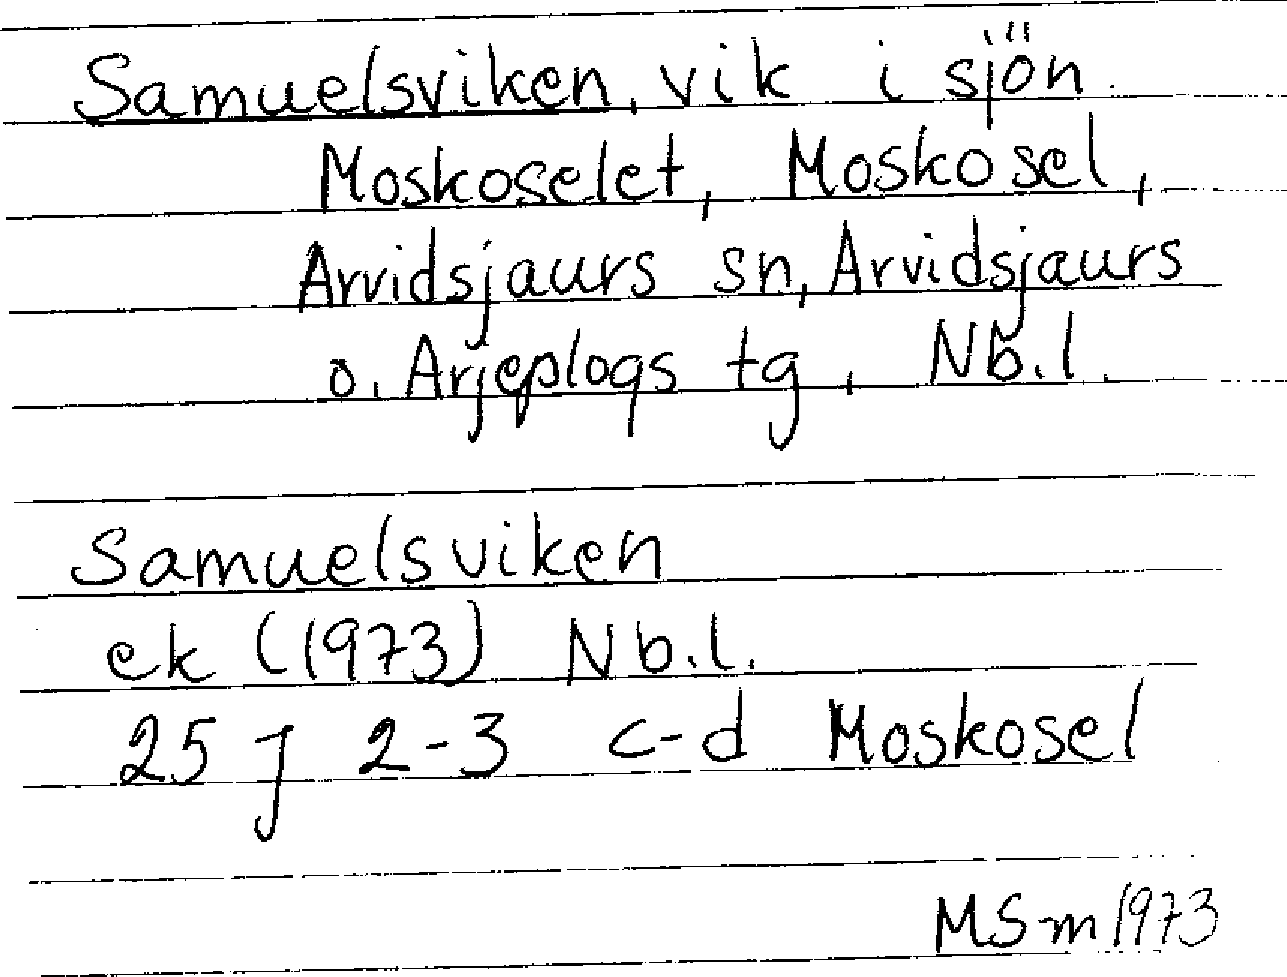 Samuelsviken, vik i sjön
Moskoselet, Moskosel,
Arvidsjaurs sn, Arvidsjaurs
o. Arjeplogs tg, Nb.l.
Samuelsviken
ek (1973) Nb.l.
25 J 2-3 c-d Moskosel
MSm 1973